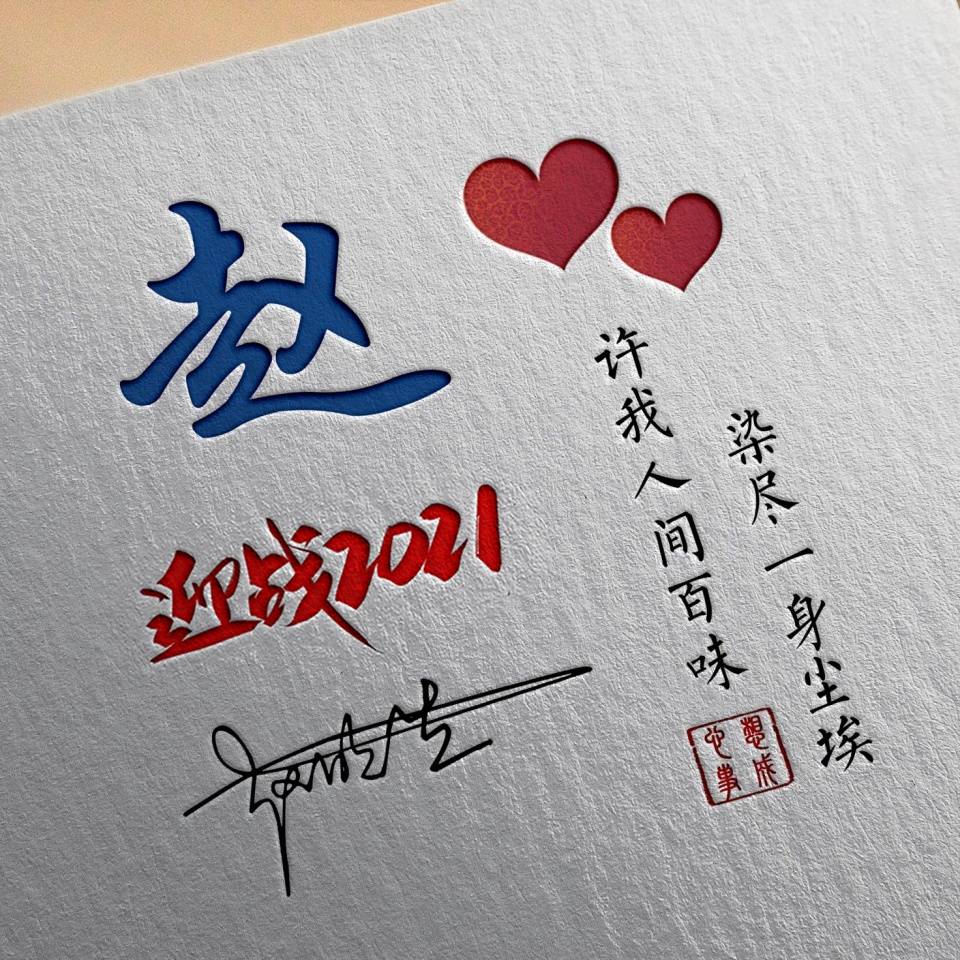 赵
迎战2021
许我人间百味
染尽一身尘埃
心想
事成